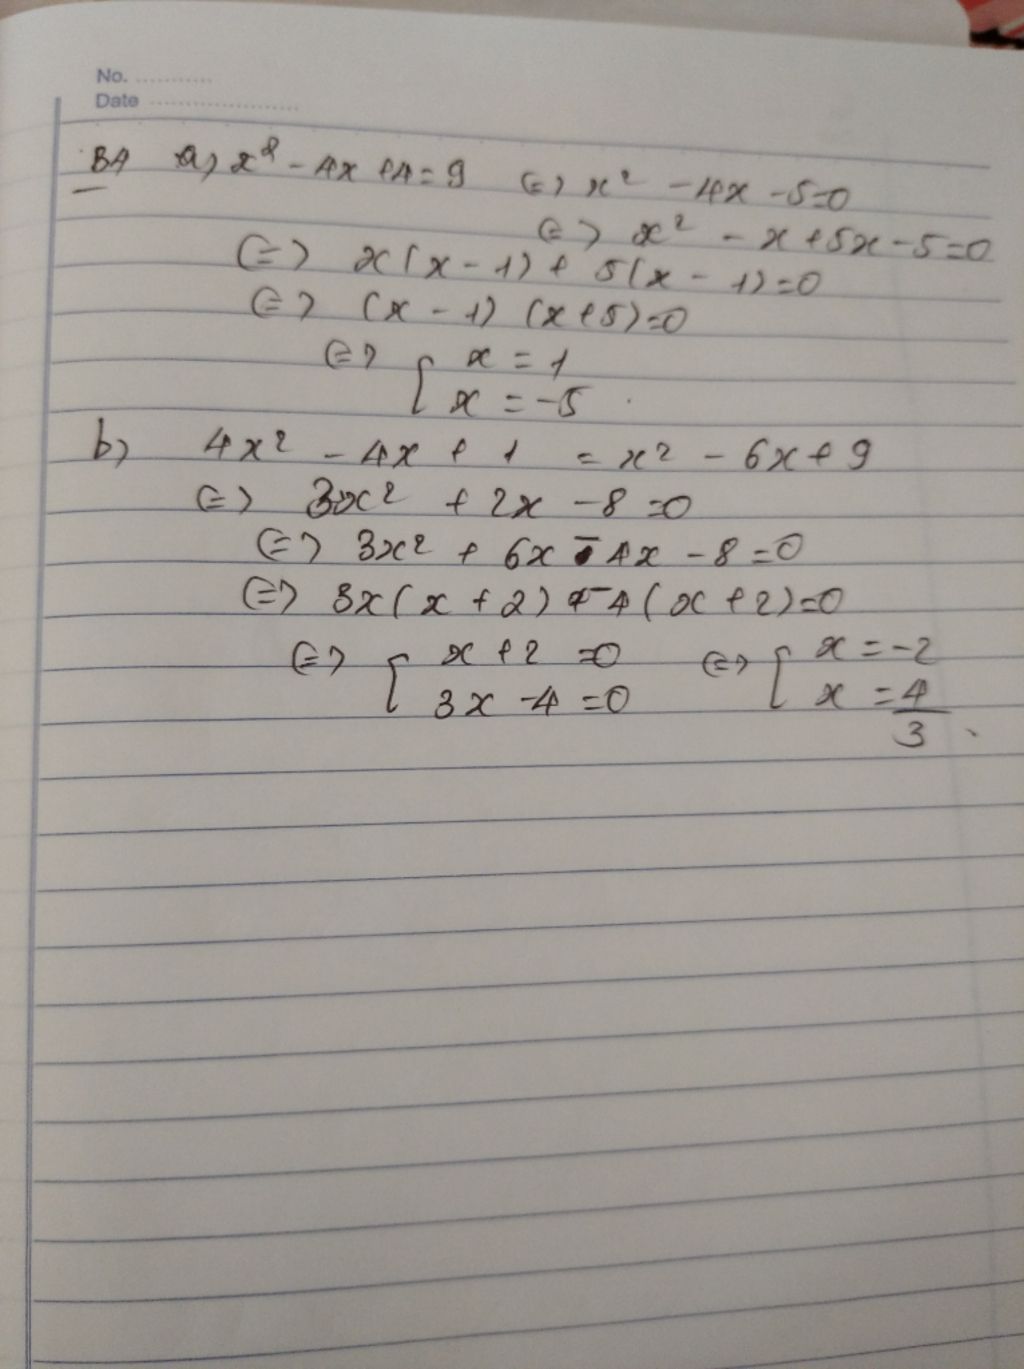 No. ...........
Date ......................
B4 a) x² - 4x + 4 = 9 <=> x² - 4x - 5 = 0
<=> x² - x + 5x - 5 = 0
<=> x(x - 1) + 5(x - 1) = 0
<=> (x - 1) (x + 5) = 0
<=> [ x = 1
x = -5 .
b) 4x² - 4x + 1 = x² - 6x + 9
<=> 3x² + 2x - 8 = 0
<=> 3x² + 6x - 4x - 8 = 0
<=> 3x(x + 2) - 4(x + 2) = 0
<=> [ x + 2 = 0 <=> [ x = -2
3x - 4 = 0 x = 4/3 .